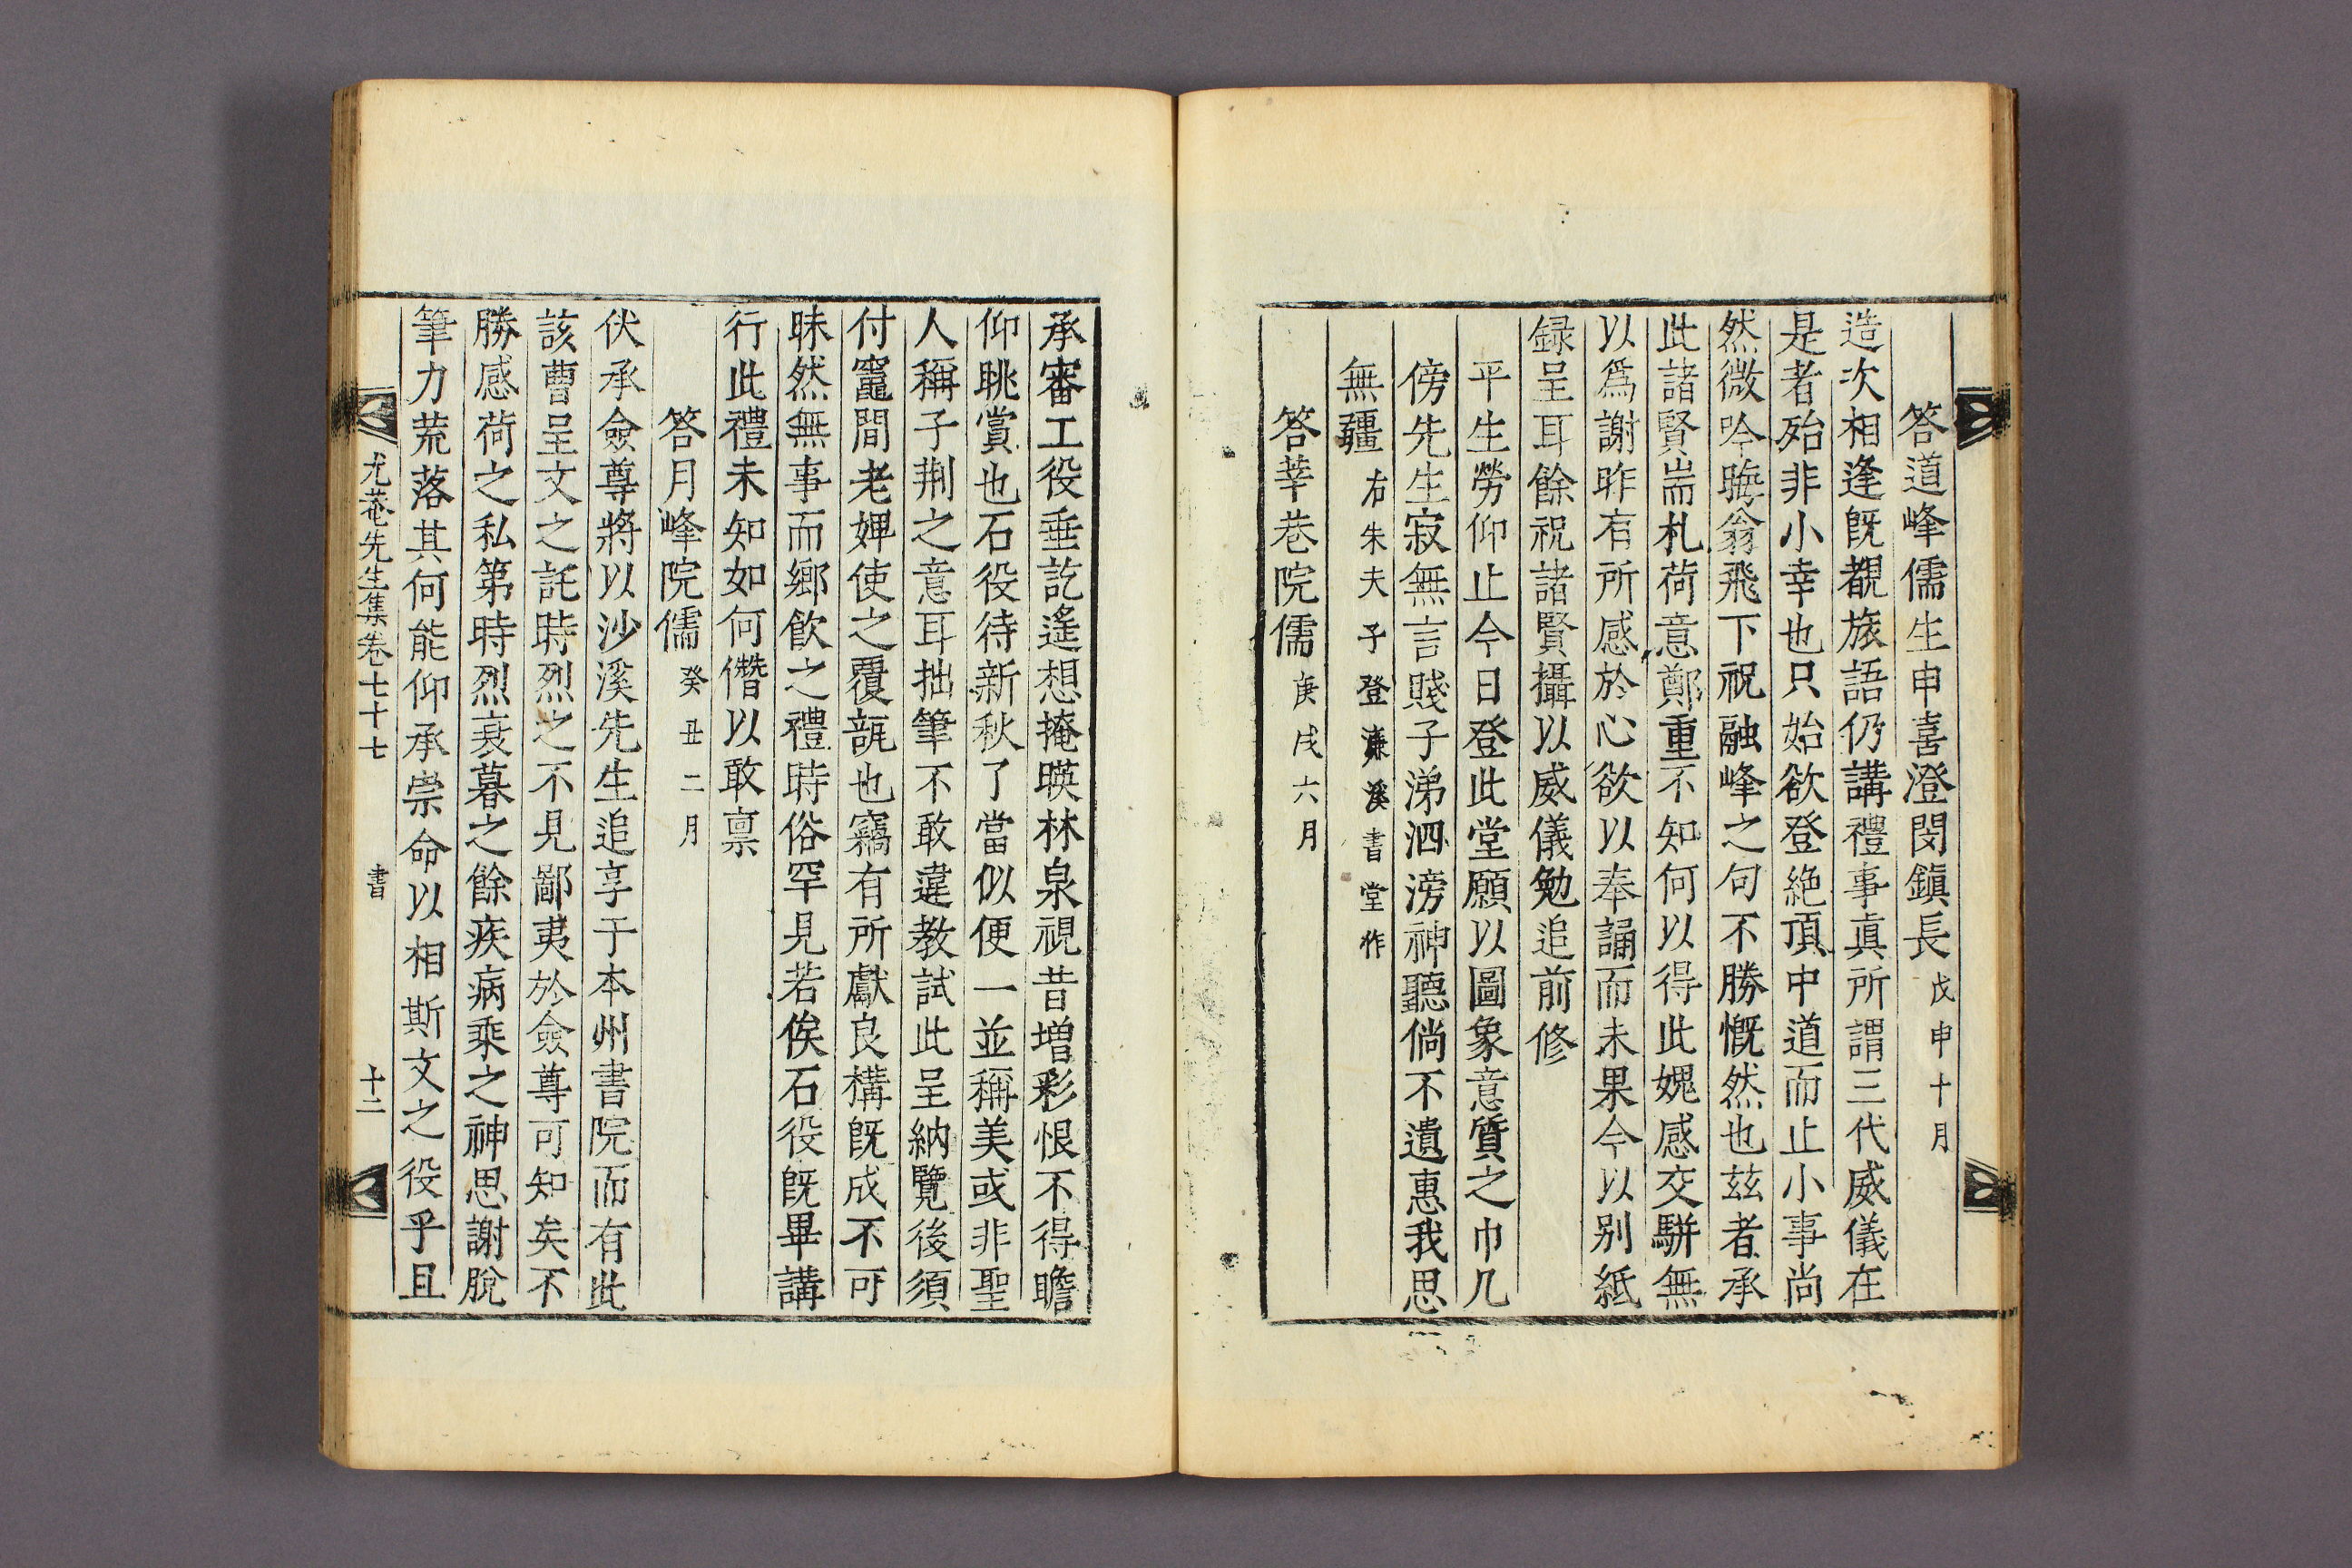 答道峰儒生申喜澄閔鎭長戊申十月
造次相逢旣覩旅語仍講禮事眞所謂三代威儀在
是者殆非小幸也只始欲登絶頂中道而止小事尙
然微吟晦翁飛下祝融峰之句不勝慨然也玆者承
此諸賢耑札荷意鄭重不知何以得此媿感交騈無
以爲謝昨有所感於心欲以奉誦而未果今以別紙
録呈耳餘祝諸賢攝以威儀勉追前修
平生勞仰止今日登此堂願以圖象意質之巾几
傍先生寂無言賤子涕泗滂神聽倘不遺惠我思
無疆右朱夫子登濂溪書堂作
答莘巷院儒庚戌六月
承審工役垂訖遙想掩暎林泉視昔增彩恨不得瞻
仰眺賞也石役待新秋了當似便一並稱美或非聖
人稱子荆之意耳拙筆不敢違敎試此呈納覽後須
付竈間老婢使之覆瓿也竊有所獻良構旣成不可
昧然無事而鄕飮之禮時俗罕見若俟石役旣畢講
行此禮未知如何僭以敢禀
答月峰院儒癸丑二月
伏承僉尊將以沙溪先生追享于本州書院而有此
該曹呈文之託時烈之不見鄙夷於僉尊可知矣不
勝感荷之私第時烈衰暮之餘疾病乘之神思謝脫
筆力荒落其何能仰承崇命以相斯文之役乎且
尤菴先生集卷七十七 書 十二